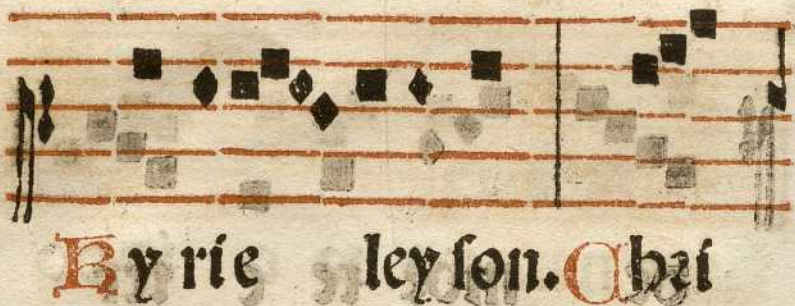 Kyrie leyson. Chri